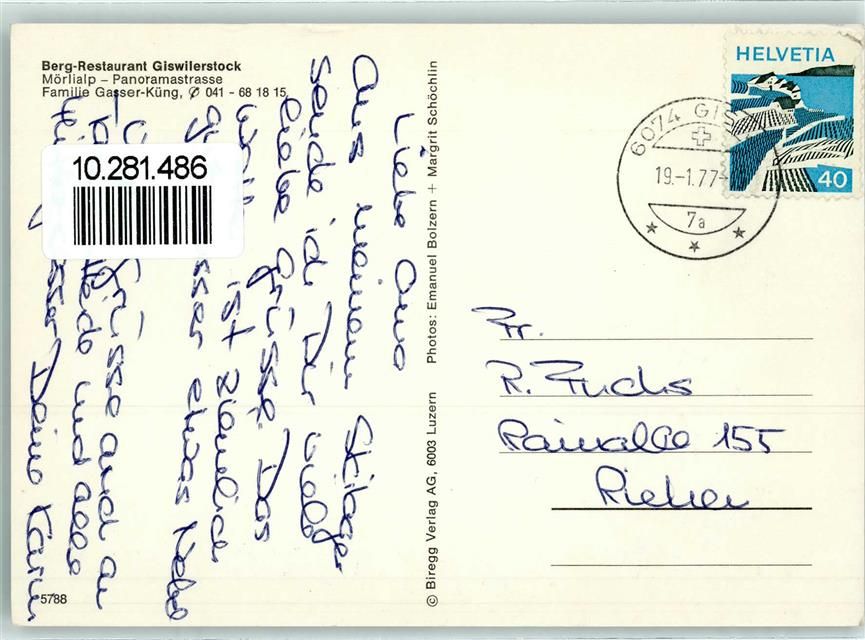 Berg-Restaurant Giswilerstock
Mörlialp – Panoramastrasse
Familie Gasser-Küng, ✆ 041 - 68 18 15
10.281.486
Liebe Omo
Aus meinem Skilager
sende ich Dir viele
liebe Grüsse. Das
ist ziemlich
etwas Nebel
Grüsse auch an
und alle
Deine Karin
5788
© Biregg Verlag AG, 6003 Luzern Photos: Emanuel Bolzern + Margrit Schöchlin
HELVETIA
40
6074 GIS
19.-1.77-
7a
Fr.
R. Fuchs
Rainallee 155
Riehen